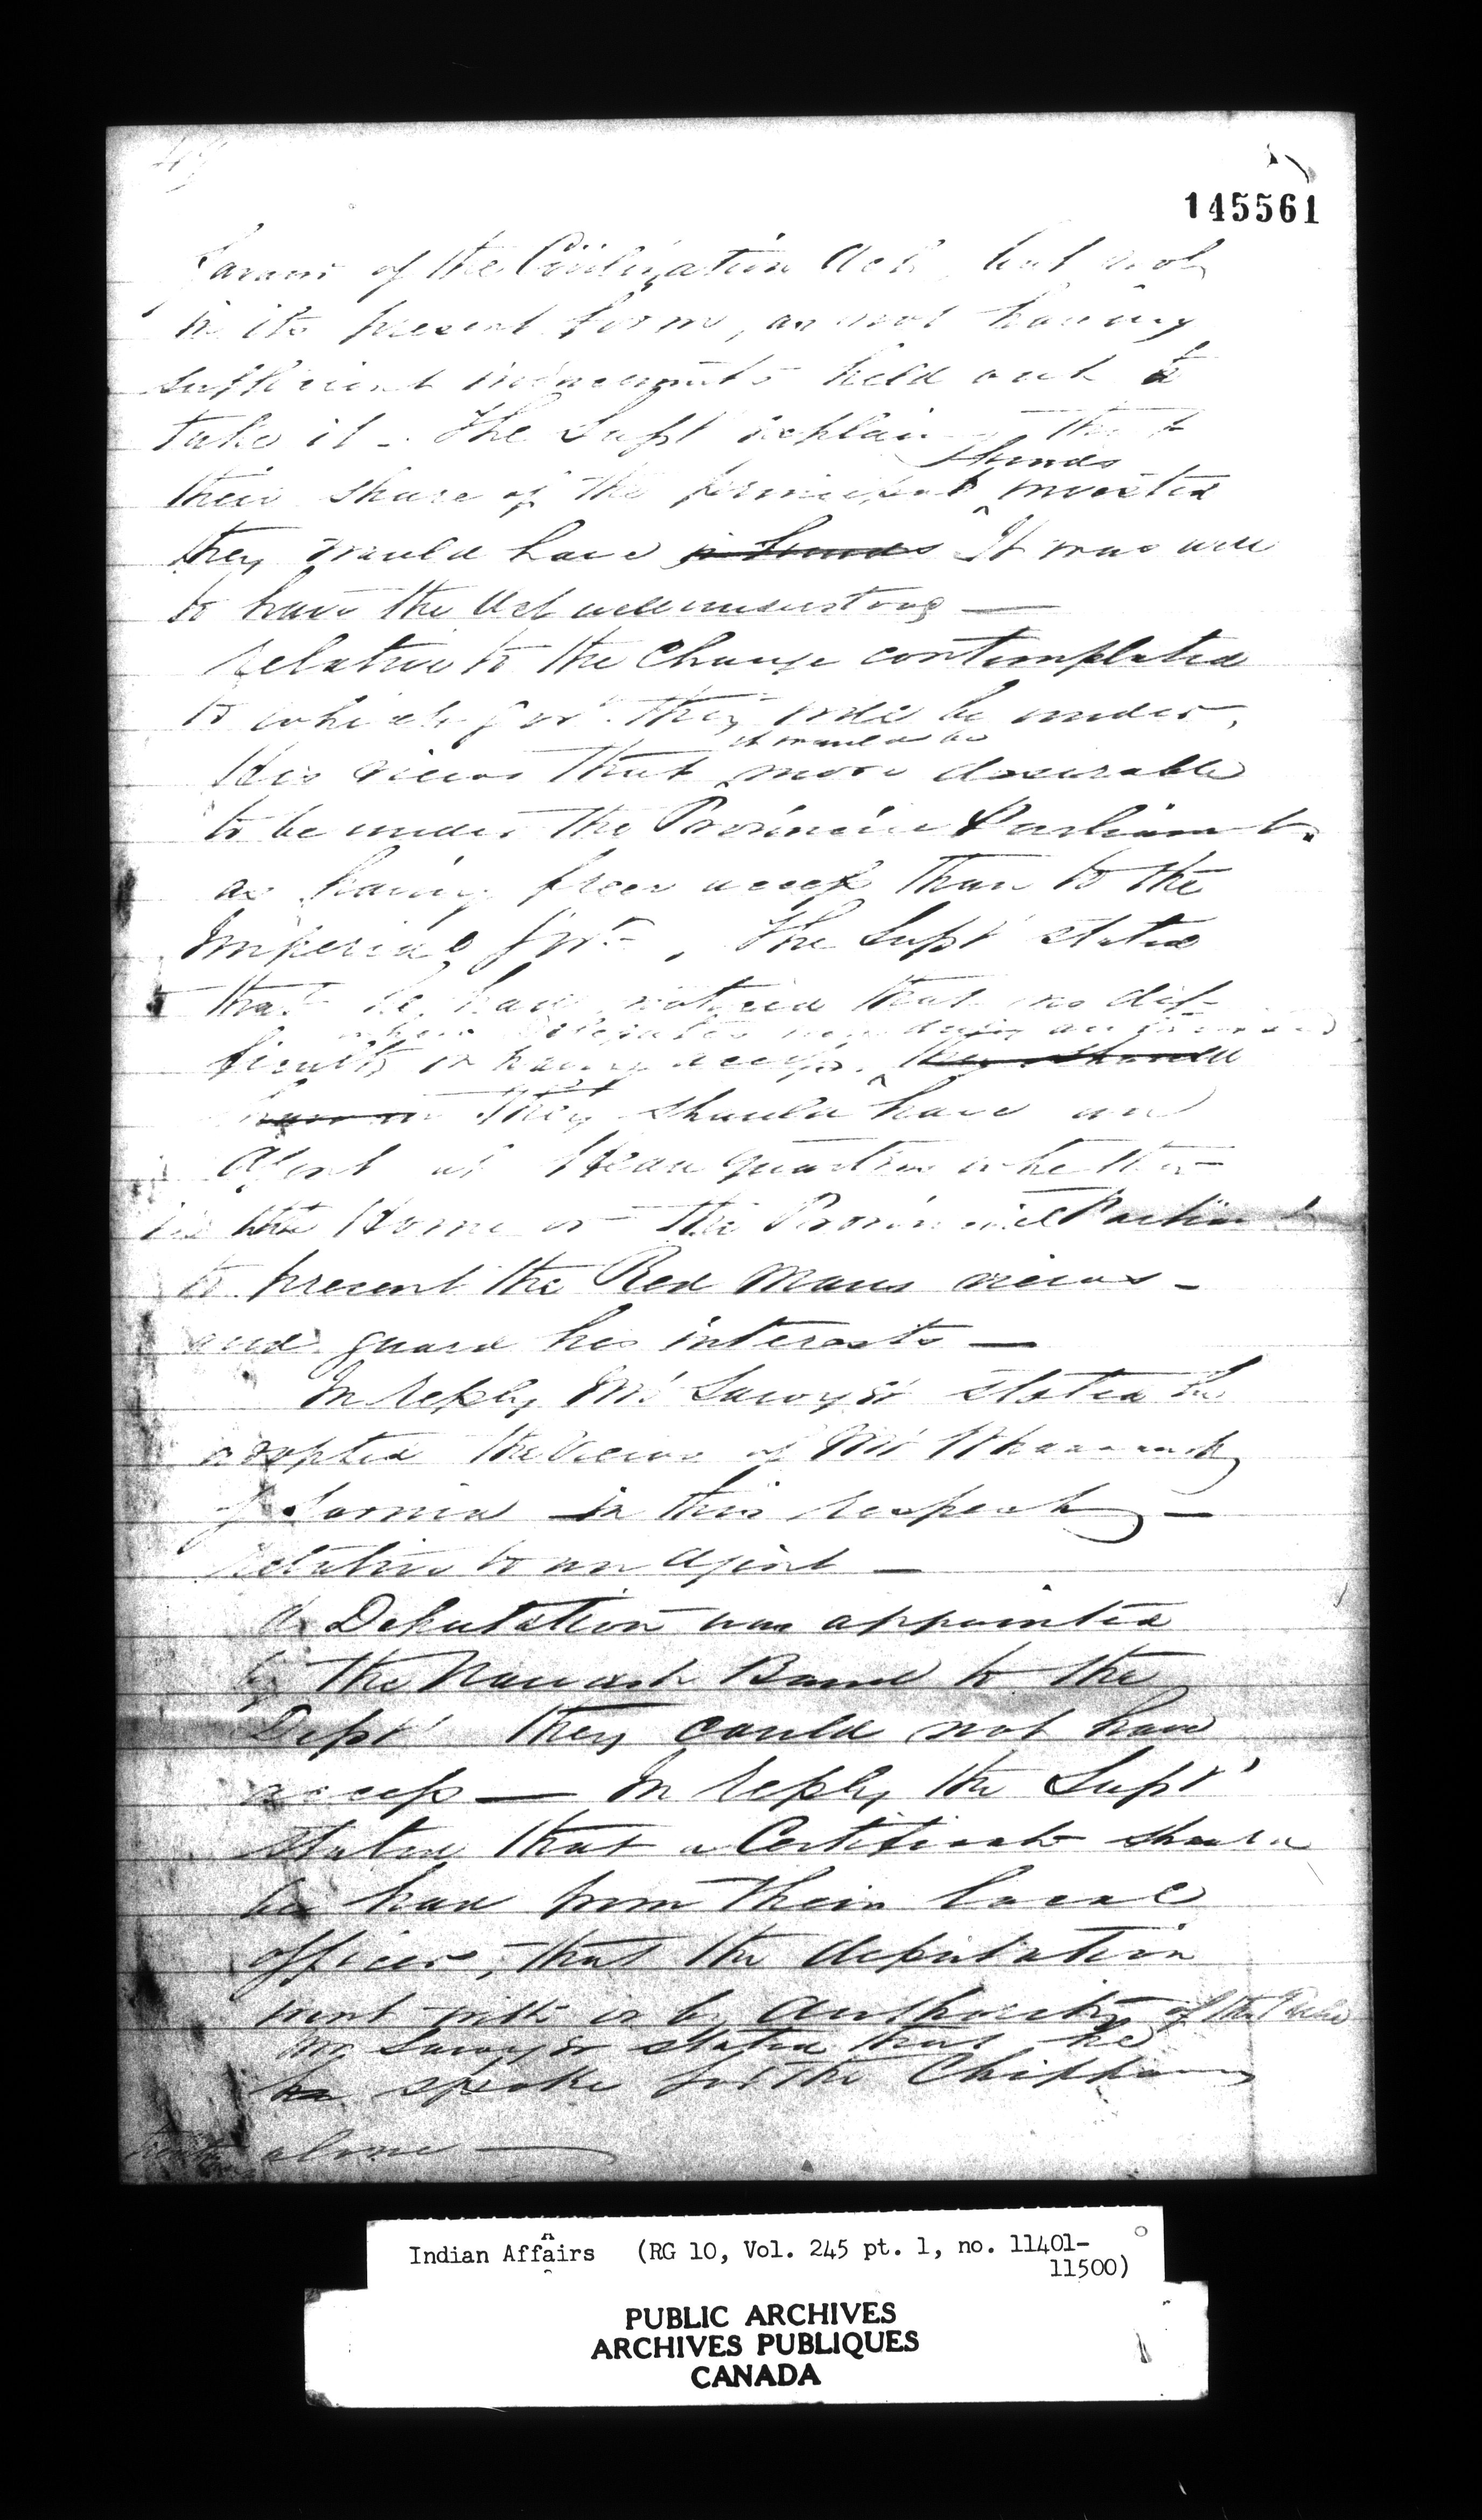 145561
favour of the Civilization Act, but not
in its present form, as not having
sufficient inducements held out to
take it. The Supt explain
funds
their share of the principal invested
they would have in funds It was well
to have the Act well understood —
relative to the Change contemplated
to which Govt. they wde be under,
it would be
His views that more desirable
to be under the Provincial Parliament.
as having freer access than to the
Imperial Govt. The Supt stated
that he had noticed that no dif-
ficulty in having access. they should
have an They should have an
Agent at Head quarters whether
in the Home or the Provincial Parliamt
to present the Red Mans views -
and guard his interests —
In reply, Mr Sawyer stated he
adopted the views of Mr
of Sarnia in this respect —
relative to an Agent —
A Deputation was appointed
by the Nawash Band to the
Dept they could not have
access — In reply the Supt
stated that a Certificate should
be had from their local
officer, that the deputation
went with or by Authority of the
Mr Sawyer stated that he
he spoke for the Chippawas
alone —
Indian Affairs (RG 10, Vol. 245 pt. 1, no. 11401-
11500)
PUBLIC ARCHIVES
ARCHIVES PUBLIQUES
CANADA